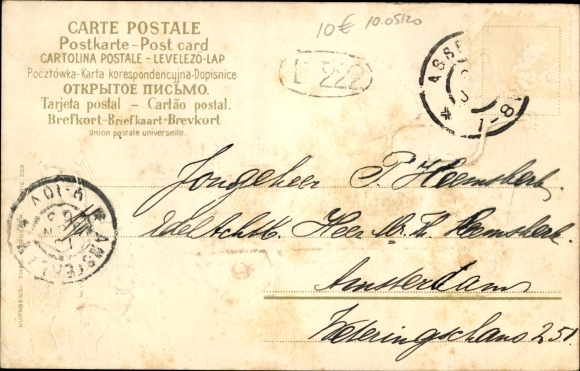 CARTE POSTALE
Postkarte – Post card
CARTOLINA POSTALE – LEVELEZÖ-LAP
Pocztówka-Karta korespondencyjna-Dopisnice
ОТКРЫТОЕ ПИСЬМО.
Tarjeta postal – Cartão postal.
Brefkort-Briefkaart-Brevkort
Union postale universelle.
10€ 10.05120
222
ASSE
AMSTERDA
Jongeheer P. Heemskerk.
WelEd.Achtb. Heer Mr. Th. Heemskerk.
Amsterdam
Weteringschans 251